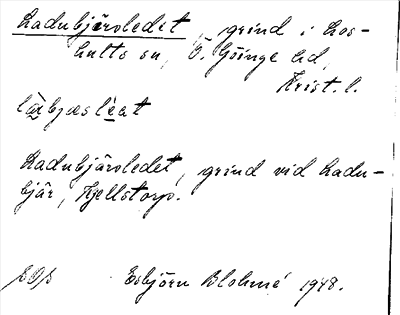 Ladubjärsledet, grind i Los-
hults sn, Ö. Göinge hd,
Krist. l.
Ladubjärsledet, grind vid Ladu-
bjär, Kjellstorp.
Esbjörn Blohmé 1948.